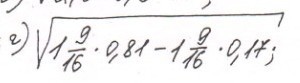 г) √(1 9/16 · 0,81 − 1 9/16 · 0,17;